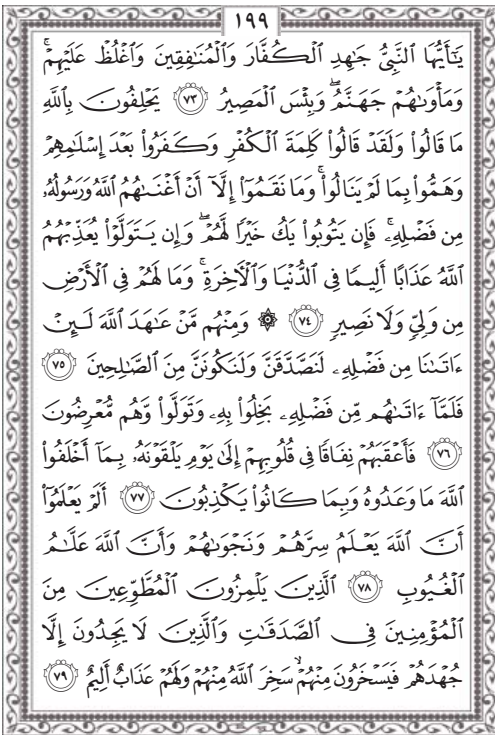 ١٩٩
يَٰٓأَيُّهَا ٱلنَّبِيُّ جَٰهِدِ ٱلۡكُفَّارَ وَٱلۡمُنَٰفِقِينَ وَٱغۡلُظۡ عَلَيۡهِمۡۚ
وَمَأۡوَىٰهُمۡ جَهَنَّمُۖ وَبِئۡسَ ٱلۡمَصِيرُ ٧٣ يَحۡلِفُونَ بِٱللَّهِ
مَا قَالُواْ وَلَقَدۡ قَالُواْ كَلِمَةَ ٱلۡكُفۡرِ وَكَفَرُواْ بَعۡدَ إِسۡلَٰمِهِمۡ
وَهَمُّواْ بِمَا لَمۡ يَنَالُواْۚ وَمَا نَقَمُوٓاْ إِلَّآ أَنۡ أَغۡنَىٰهُمُ ٱللَّهُ وَرَسُولُهُۥ
مِن فَضۡلِهِۦۚ فَإِن يَتُوبُواْ يَكُ خَيۡرٗا لَّهُمۡۖ وَإِن يَتَوَلَّوۡاْ يُعَذِّبۡهُمُ
ٱللَّهُ عَذَابًا أَلِيمٗا فِي ٱلدُّنۡيَا وَٱلۡأٓخِرَةِۚ وَمَا لَهُمۡ فِي ٱلۡأَرۡضِ
مِن وَلِيّٖ وَلَا نَصِيرٖ ٧٤ ۞ وَمِنۡهُم مَّنۡ عَٰهَدَ ٱللَّهَ لَئِنۡ
ءَاتَىٰنَا مِن فَضۡلِهِۦ لَنَصَّدَّقَنَّ وَلَنَكُونَنَّ مِنَ ٱلصَّٰلِحِينَ ٧٥
فَلَمَّآ ءَاتَىٰهُم مِّن فَضۡلِهِۦ بَخِلُواْ بِهِۦ وَتَوَلَّواْ وَّهُم مُّعۡرِضُونَ
٧٦ فَأَعۡقَبَهُمۡ نِفَاقٗا فِي قُلُوبِهِمۡ إِلَىٰ يَوۡمِ يَلۡقَوۡنَهُۥ بِمَآ أَخۡلَفُواْ
ٱللَّهَ مَا وَعَدُوهُ وَبِمَا كَانُواْ يَكۡذِبُونَ ٧٧ أَلَمۡ يَعۡلَمُوٓاْ
أَنَّ ٱللَّهَ يَعۡلَمُ سِرَّهُمۡ وَنَجۡوَىٰهُمۡ وَأَنَّ ٱللَّهَ عَلَّٰمُ
ٱلۡغُيُوبِ ٧٨ ٱلَّذِينَ يَلۡمِزُونَ ٱلۡمُطَّوِّعِينَ مِنَ
ٱلۡمُؤۡمِنِينَ فِي ٱلصَّدَقَٰتِ وَٱلَّذِينَ لَا يَجِدُونَ إِلَّا
جُهۡدَهُمۡ فَيَسۡخَرُونَ مِنۡهُمۡ سَخِرَ ٱللَّهُ مِنۡهُمۡ وَلَهُمۡ عَذَابٌ أَلِيمٌ ٧٩